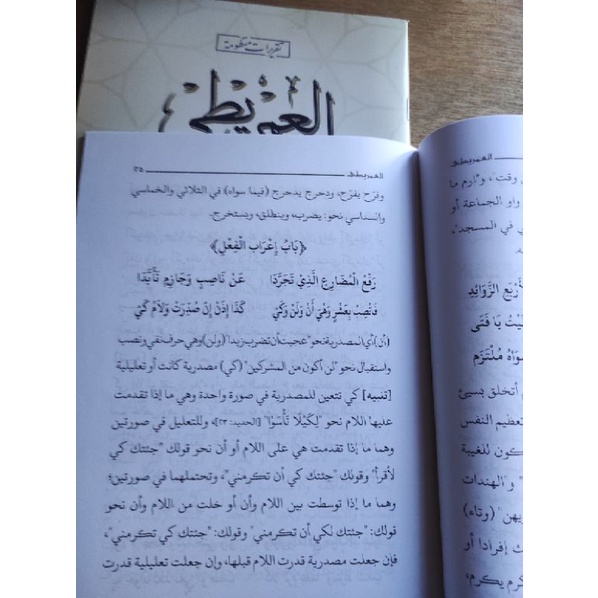 تقريرات منظومة
العمريطي
العمريطي
٣٥
وفرّح يفرّح، ودحرج يدحرج (فيما سواه) في الثلاثي والخماسي
والسداسي نحو: يضرب، وينطلق، ويستخرج.
﴿بَابُ إِعْرَابِ الْفِعْلِ﴾
رَفْعُ الْمُضَارِعِ الَّذِيْ تَجَرَّدَا عَنْ نَاصِبٍ وَجَازِمٍ تَأَبَّدَا
فَانْصِبْ بِعَشْرٍ وَهْيَ أَنْ وَلَنْ وَكَيْ كَذَا إِذَنْ إِنْ صُدِّرَتْ وَلَامُ كَيْ
(أن) أي المصدرية نحو "عجبت أن تضرب زيدا" (ولن) وهي حرف نفي ونصب
واستقبال نحو "لن أكون من المشركين" (كي) مصدرية كانت أو تعليلية
[تنبيه] كي تتعين للمصدرية في صورة واحدة وهي ما إذا تقدمت
عليها اللام نحو "لِكَيْلَا تَأْسَوْا" [الحديد: ٢٣] وللتعليل في صورتين
وهما ما إذا تقدمت هي على اللام أو أن نحو قولك "جئتك كي
لأقرأ" وقولك "جئتك كي أن تكرمني"، وتحتملهما في صورتين؛
وهما ما إذا توسطت بين اللام وأن أو خلت من اللام وأن نحو
قولك: "جئتك لكي أن تكرمني" وقولك: "جئتك كي تكرمني"،
فإن جعلت مصدرية قدرت اللام قبلها، وإن جعلت تعليلية قدرت
العمريطي
وقت"، و"ارم ما
واو الجماعة أو
ي في المسجد"،
أَرْبَعِ الزَّوَائِدِ
يَا فَتَى
سِوَاهُ مُلْتَزَم
أتخلق بسيئ
تعظيم النفس
كون للغيبة
" و"الهندات
يهن" (وتاء)
ث إفرادا أو
كرم يكرم،